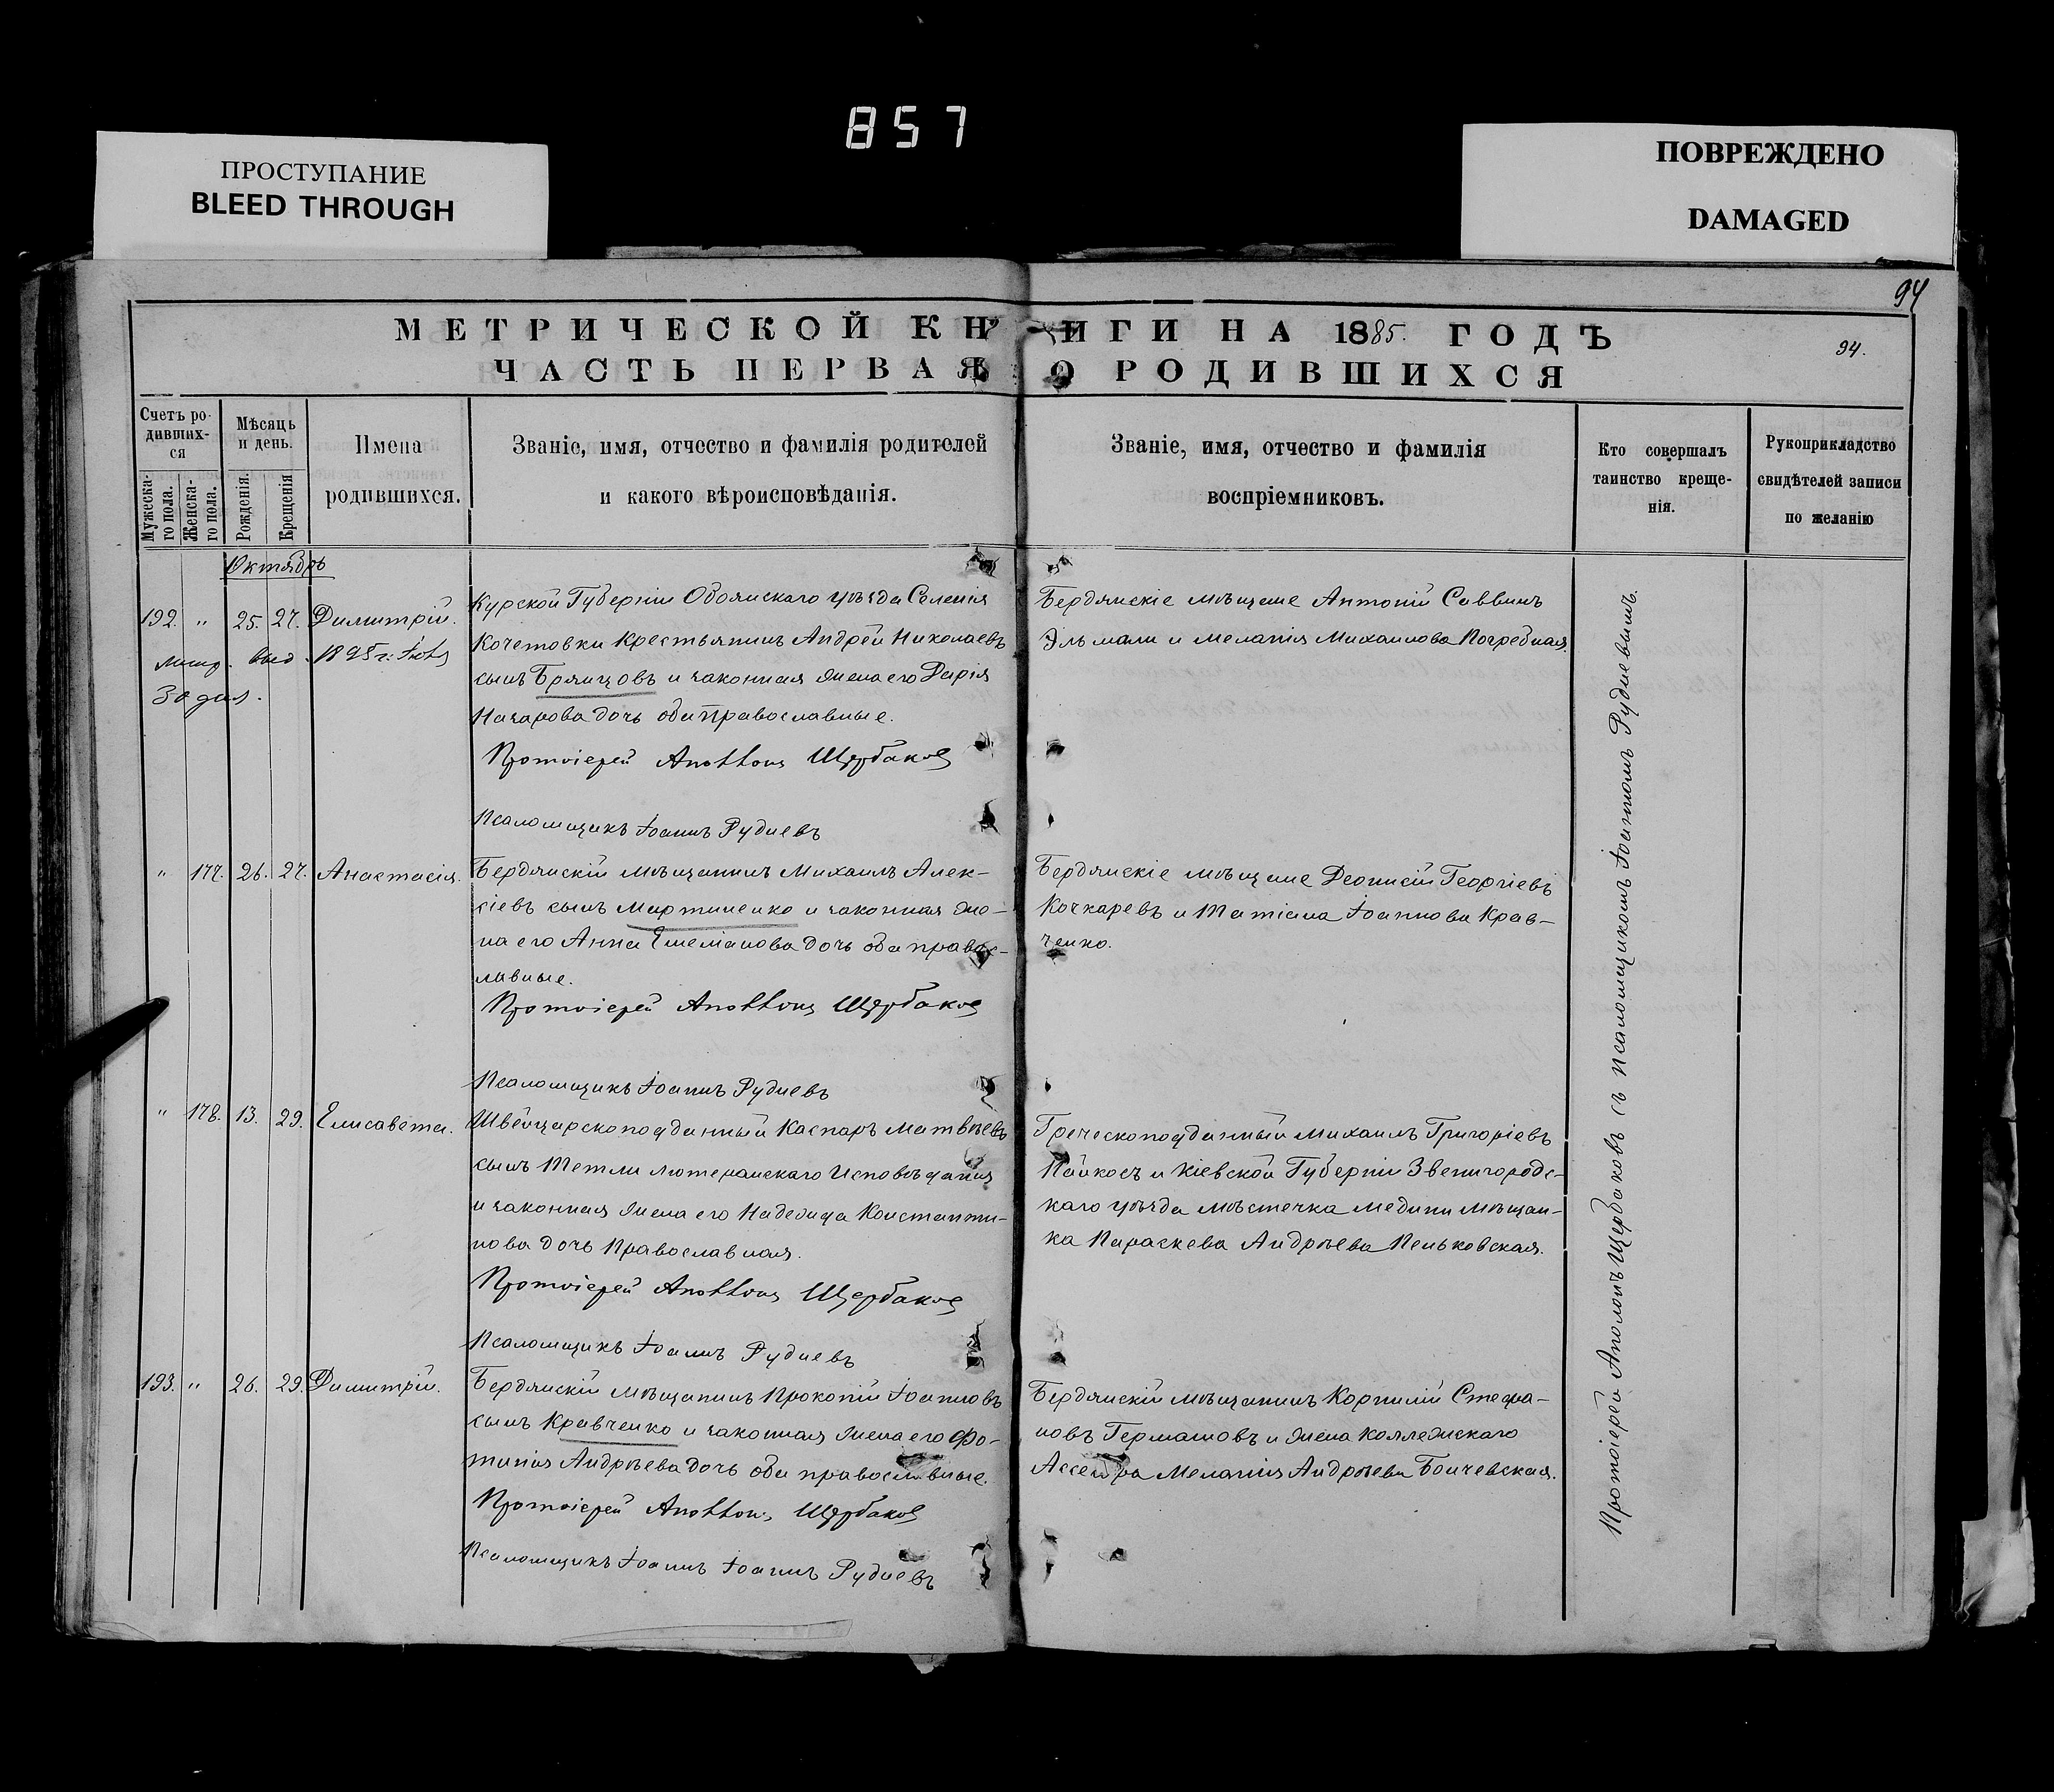 857
ПРОСТУПАНИЕ
BLEED THROUGH
ПОВРЕЖДЕНО
DAMAGED
94
МЕТРИЧЕСКОЙ КНИГИ НА 1885. ГОДЪ
94.
ЧАСТЬ ПЕРВАЯ О РОДИВШИХСЯ
Счетъ ро-
дивших-
ся
Мужеска-
го пола.
Женска-
го пола.
Мѣсяцъ
и день.
Рожденія.
Крещенія
Имена
родившихся.
Званіе, имя, отчество и фамилія родителей
и какого вѣроисповѣданія.
Званіе, имя, отчество и фамилія
воспріемниковъ.
Кто совершалъ
таинство креще-
нія.
Рукоприкладство
свидѣтелей записи
по желанію
Октябрь
192. " 25. 27. Димитрій.
выд. 1895 г:
30 дня.
Курской Губерніи Обоянскаго уѣзда Селенія
Кочетовки Крестьянинъ Андрей Николаевъ
сынъ Брянцовъ и законная жена его Дарія
Назарова дочь оба православные.
Протоіерей Аполлонъ Щербаковъ
Псаломщикъ Іоаннъ Рудневъ
Бердянскіе мѣщане Антоній Саввинъ
Эльмани и Меланія Михаилова Погребная.
" 177. 26. 27. Анастасія.
Бердянскій мѣщанинъ Михаилъ Алек-
сіевъ сынъ Мартиненко и законная же-
на его Анна Емеліанова дочь оба правос-
лавные.
Протоіерей Аполлонъ Щербаковъ
Псаломщикъ Іоаннъ Рудневъ
Бердянскіе мѣщане Діонисій Георгіевъ
Кочкаревъ и Татіана Іоаннова Крав-
ченко.
" 178. 13. 29. Елисавета.
Швейцарскоподданный Каспаръ Матвѣевъ
сынъ Тетли лютеранскаго Исповѣданія
и законная жена его Надежда Константи-
нова дочь Православная.
Протоіерей Аполлонъ Щербаковъ
Псаломщикъ Іоаннъ Рудневъ
Греческоподданный Михаилъ Григоріевъ
Пайкосъ и Кіевской Губерніи Звенигородс-
каго уѣзда мѣстечка Медини мѣщан-
ка Параскева Андрѣева Пеньковская.
193. " 26. 29. Димитрій.
Бердянскій мѣщанинъ Прокопій Іоанновъ
сынъ Кравченко и законная жена его Фо-
тинія Андрѣева дочь оба православные.
Протоіерей Аполлонъ Щербаковъ
Псаломщикъ Іоаннъ Іоаннъ Рудневъ
Бердянскій мѣщанинъ Корнилій Стефа-
новъ Германовъ и жена Коллежскаго
Ассесора Меланія Андрѣева Бончевская.
Протоіерей Аполонъ Щербаковъ съ псаломщикомъ Іоанномъ Рудневымъ.